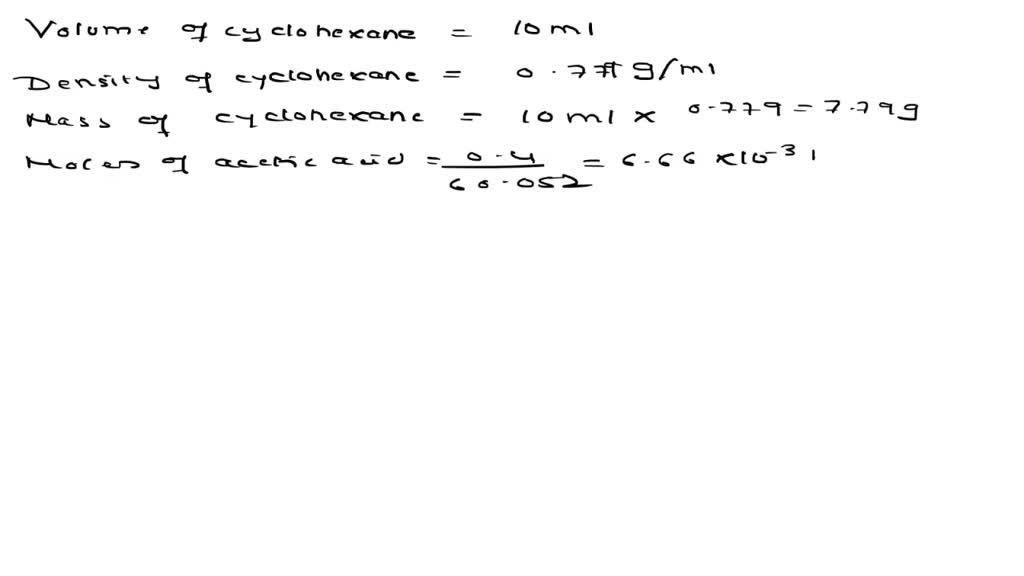 Volume of cyclohexane = 10ml
Density of cyclohexane = 0.779 g/ml
Mass of cyclohexane = 10ml × 0.779 = 7.79g
Moles of acetic acid = 0.4/60.052 = 6.66 ×10⁻³